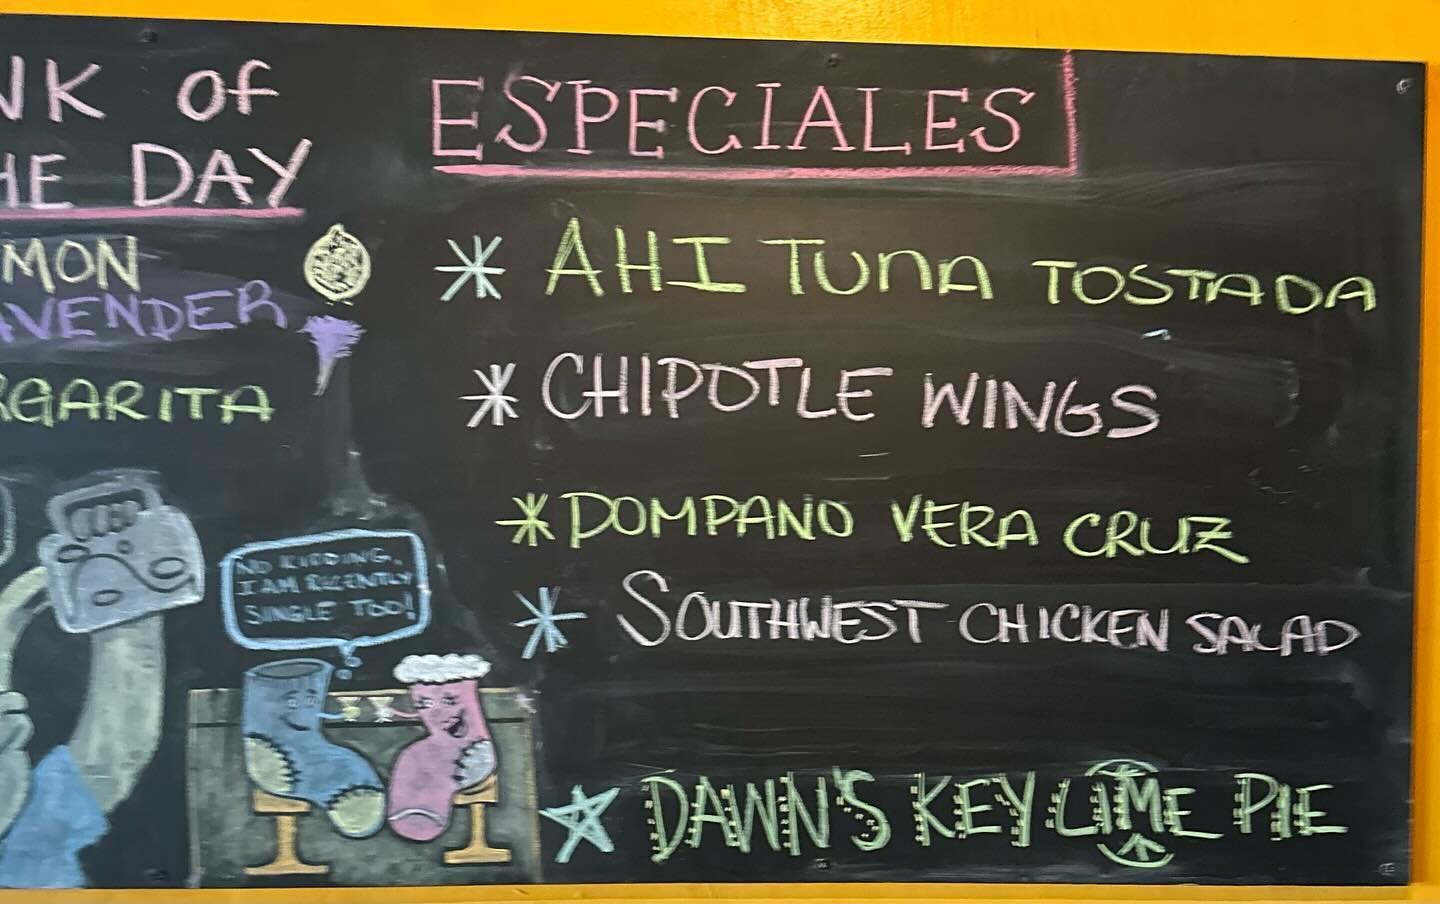 NK of
HE DAY
MON
AVENDER
RGARITA
NO KIDDING,
I AM RECENTLY
SINGLE TOO!
ESPECIALES
AHI TUNA TOSTADA
CHIPOTLE WINGS
POMPANO VERA CRUZ
SOUTHWEST CHICKEN SALAD
DAWN'S KEY LIME PIE